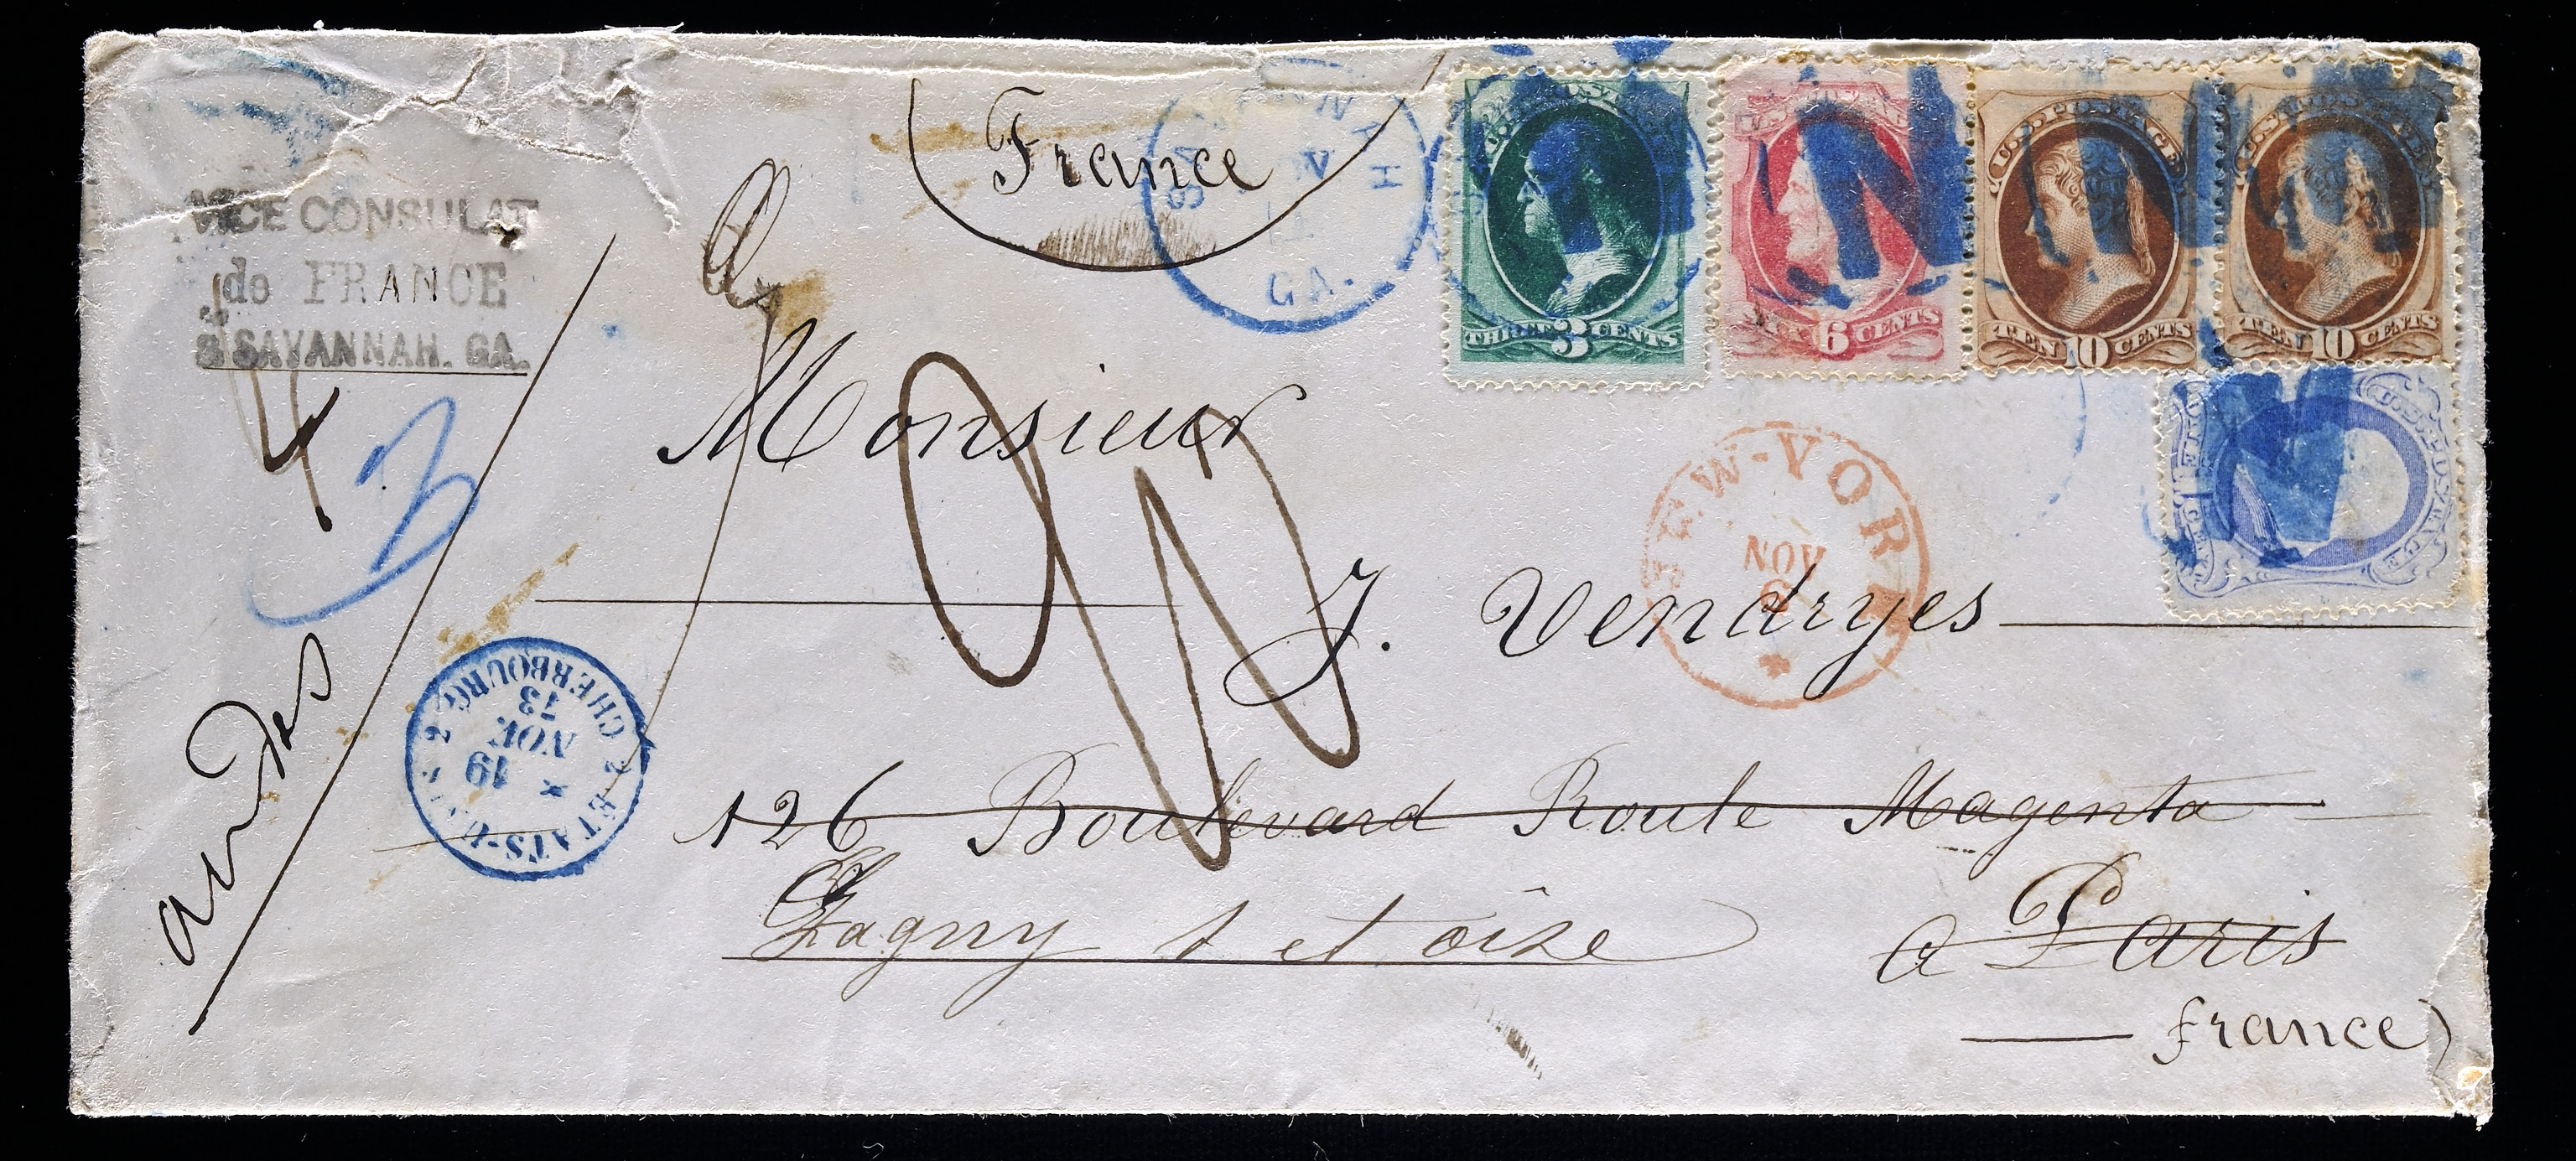 France
SAVANNAH
GA.
VICE CONSULAT
de FRANCE
à SAVANNAH. GA.
U.S. POSTAGE
THREE 3 CENTS
SIX 6 CENTS
U.S. POSTAGE
TEN 10 CENTS
U.S. POSTAGE
TEN 10 CENTS
U.S. POSTAGE
4
3
Monsieur
NEW-YORK
NOV
J. Vendryes
ETATS-UNIS
CHERBOURG
19
NOV
73
126 Boulevard Roule Magenta
Gagny S et oise
a Paris
france)